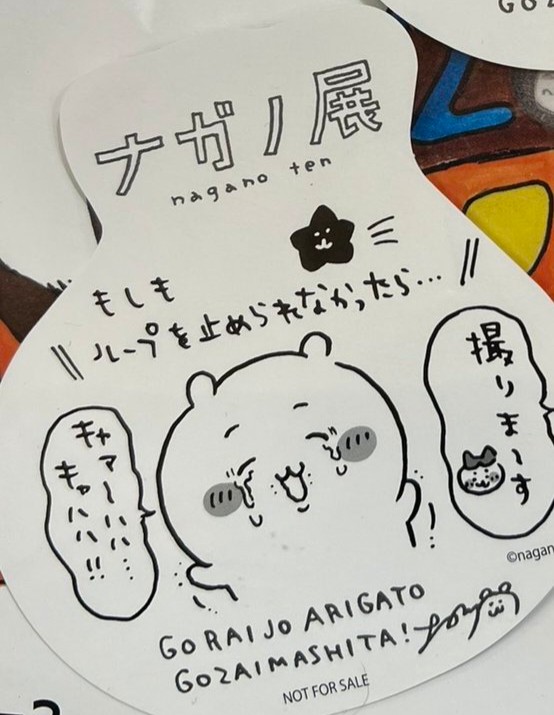 ナガノ展
nagano ten
もしも
ループを止められなかったら…
撮りま〜す
キャァーハハ…
キャハハ!!
©nagan
GORAIJO ARIGATO
GOZAIMASHITA!
NOT FOR SALE